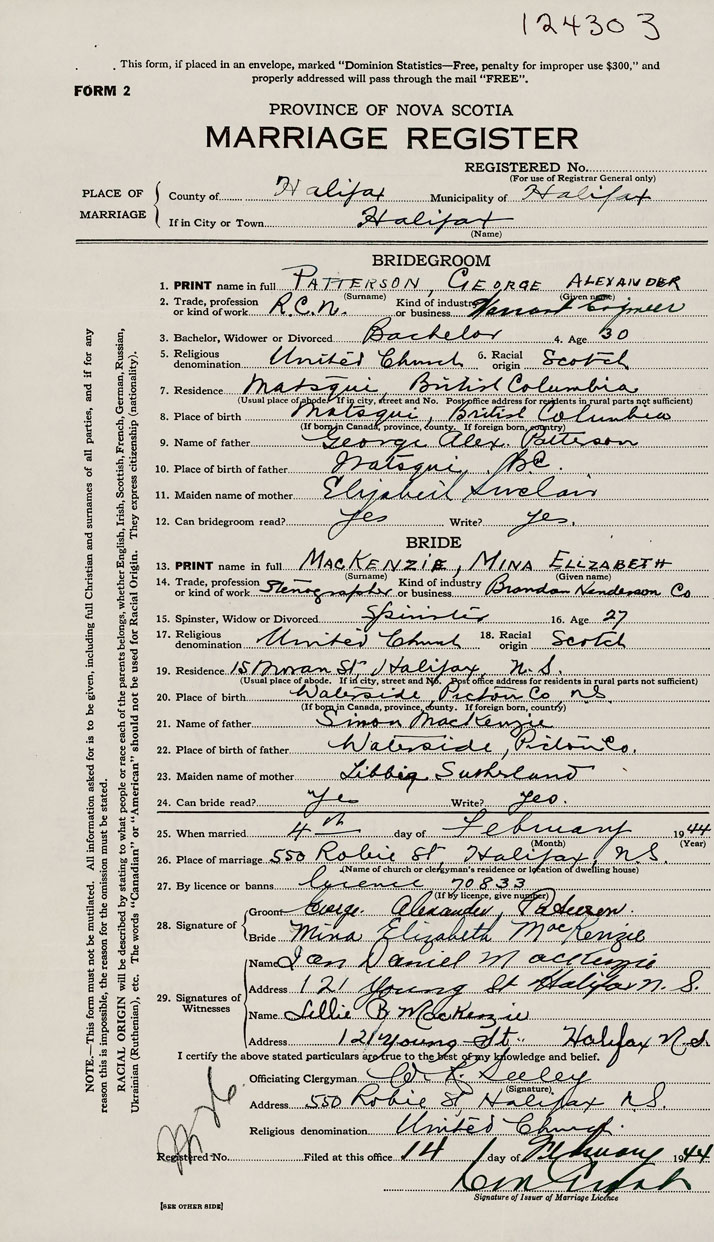 124303
This form, if placed in an envelope, marked "Dominion Statistics—Free, penalty for improper use $300," and
properly addressed will pass through the mail "FREE".
FORM 2
PROVINCE OF NOVA SCOTIA
MARRIAGE REGISTER
REGISTERED No.
(For use of Registrar General only)
PLACE OF MARRIAGE
County of Halifax Municipality of Halifax
If in City or Town Halifax
(Name)
BRIDEGROOM
1. PRINT name in full PATTERSON, GEORGE ALEXANDER
(Surname) (Given name)
2. Trade, profession or kind of work R.C.N. Kind of industry or business Warrant Engineer
3. Bachelor, Widower or Divorced Bachelor 4. Age 30
5. Religious denomination United Church 6. Racial origin Scotch
7. Residence Matsqui, British Columbia
(Usual place of abode. If in city, street and No. Post office address for residents in rural parts not sufficient)
8. Place of birth Matsqui, British Columbia
(If born in Canada, province, county. If foreign born, country)
9. Name of father George Alex. Patterson
10. Place of birth of father Matsqui, B.C.
11. Maiden name of mother Elizabeth Sinclair
12. Can bridegroom read? yes Write? yes.
BRIDE
13. PRINT name in full MACKENZIE, MINA ELIZABETH
(Surname) (Given name)
14. Trade, profession or kind of work Stenographer Kind of industry or business Brandon Henderson Co
15. Spinster, Widow or Divorced Spinster 16. Age 27
17. Religious denomination United Church 18. Racial origin Scotch
19. Residence 15 Moran St Halifax, N.S.
(Usual place of abode. If in city, street and No. Post office address for residents in rural parts not sufficient)
20. Place of birth Waterside, Pictou Co, N.S.
(If born in Canada, province, county. If foreign born, country)
21. Name of father Simon MacKenzie
22. Place of birth of father Waterside, Pictou Co.
23. Maiden name of mother Libbie Sutherland
24. Can bride read? yes Write? yes.
25. When married 4th day of February 1944
(Month) (Year)
26. Place of marriage 550 Robie St, Halifax, N.S.
(Name of church or clergyman's residence or location of dwelling house)
27. By licence or banns licence 70833
(If by licence, give number)
28. Signature of
Groom George Alexander Patterson.
Bride Mina Elizabeth MacKenzie
29. Signatures of Witnesses
Name Ian Daniel MacKenzie
Address 121 Young St Halifax N.S.
Name Lillie B MacKenzie
Address 121 Young St. Halifax N.S.
I certify the above stated particulars are true to the best of my knowledge and belief.
Officiating Clergyman Seeley
(Signature)
Address 550 Robie St Halifax N.S.
Religious denomination United Church.
Registered No. Filed at this office 14 day of February 1944
Signature of Issuer of Marriage Licence
[SEE OTHER SIDE]
NOTE.—This form must not be mutilated. All information asked for is to be given, including full Christian and surnames of all parties, and if for any
reason this is impossible, the reason for the omission must be stated.
RACIAL ORIGIN will be described by stating to what people or race each of the parents belongs, whether English, Irish, Scottish, French, German, Russian,
Ukrainian (Ruthenian), etc. The words "Canadian" or "American" should not be used for Racial Origin. They express citizenship (nationality).